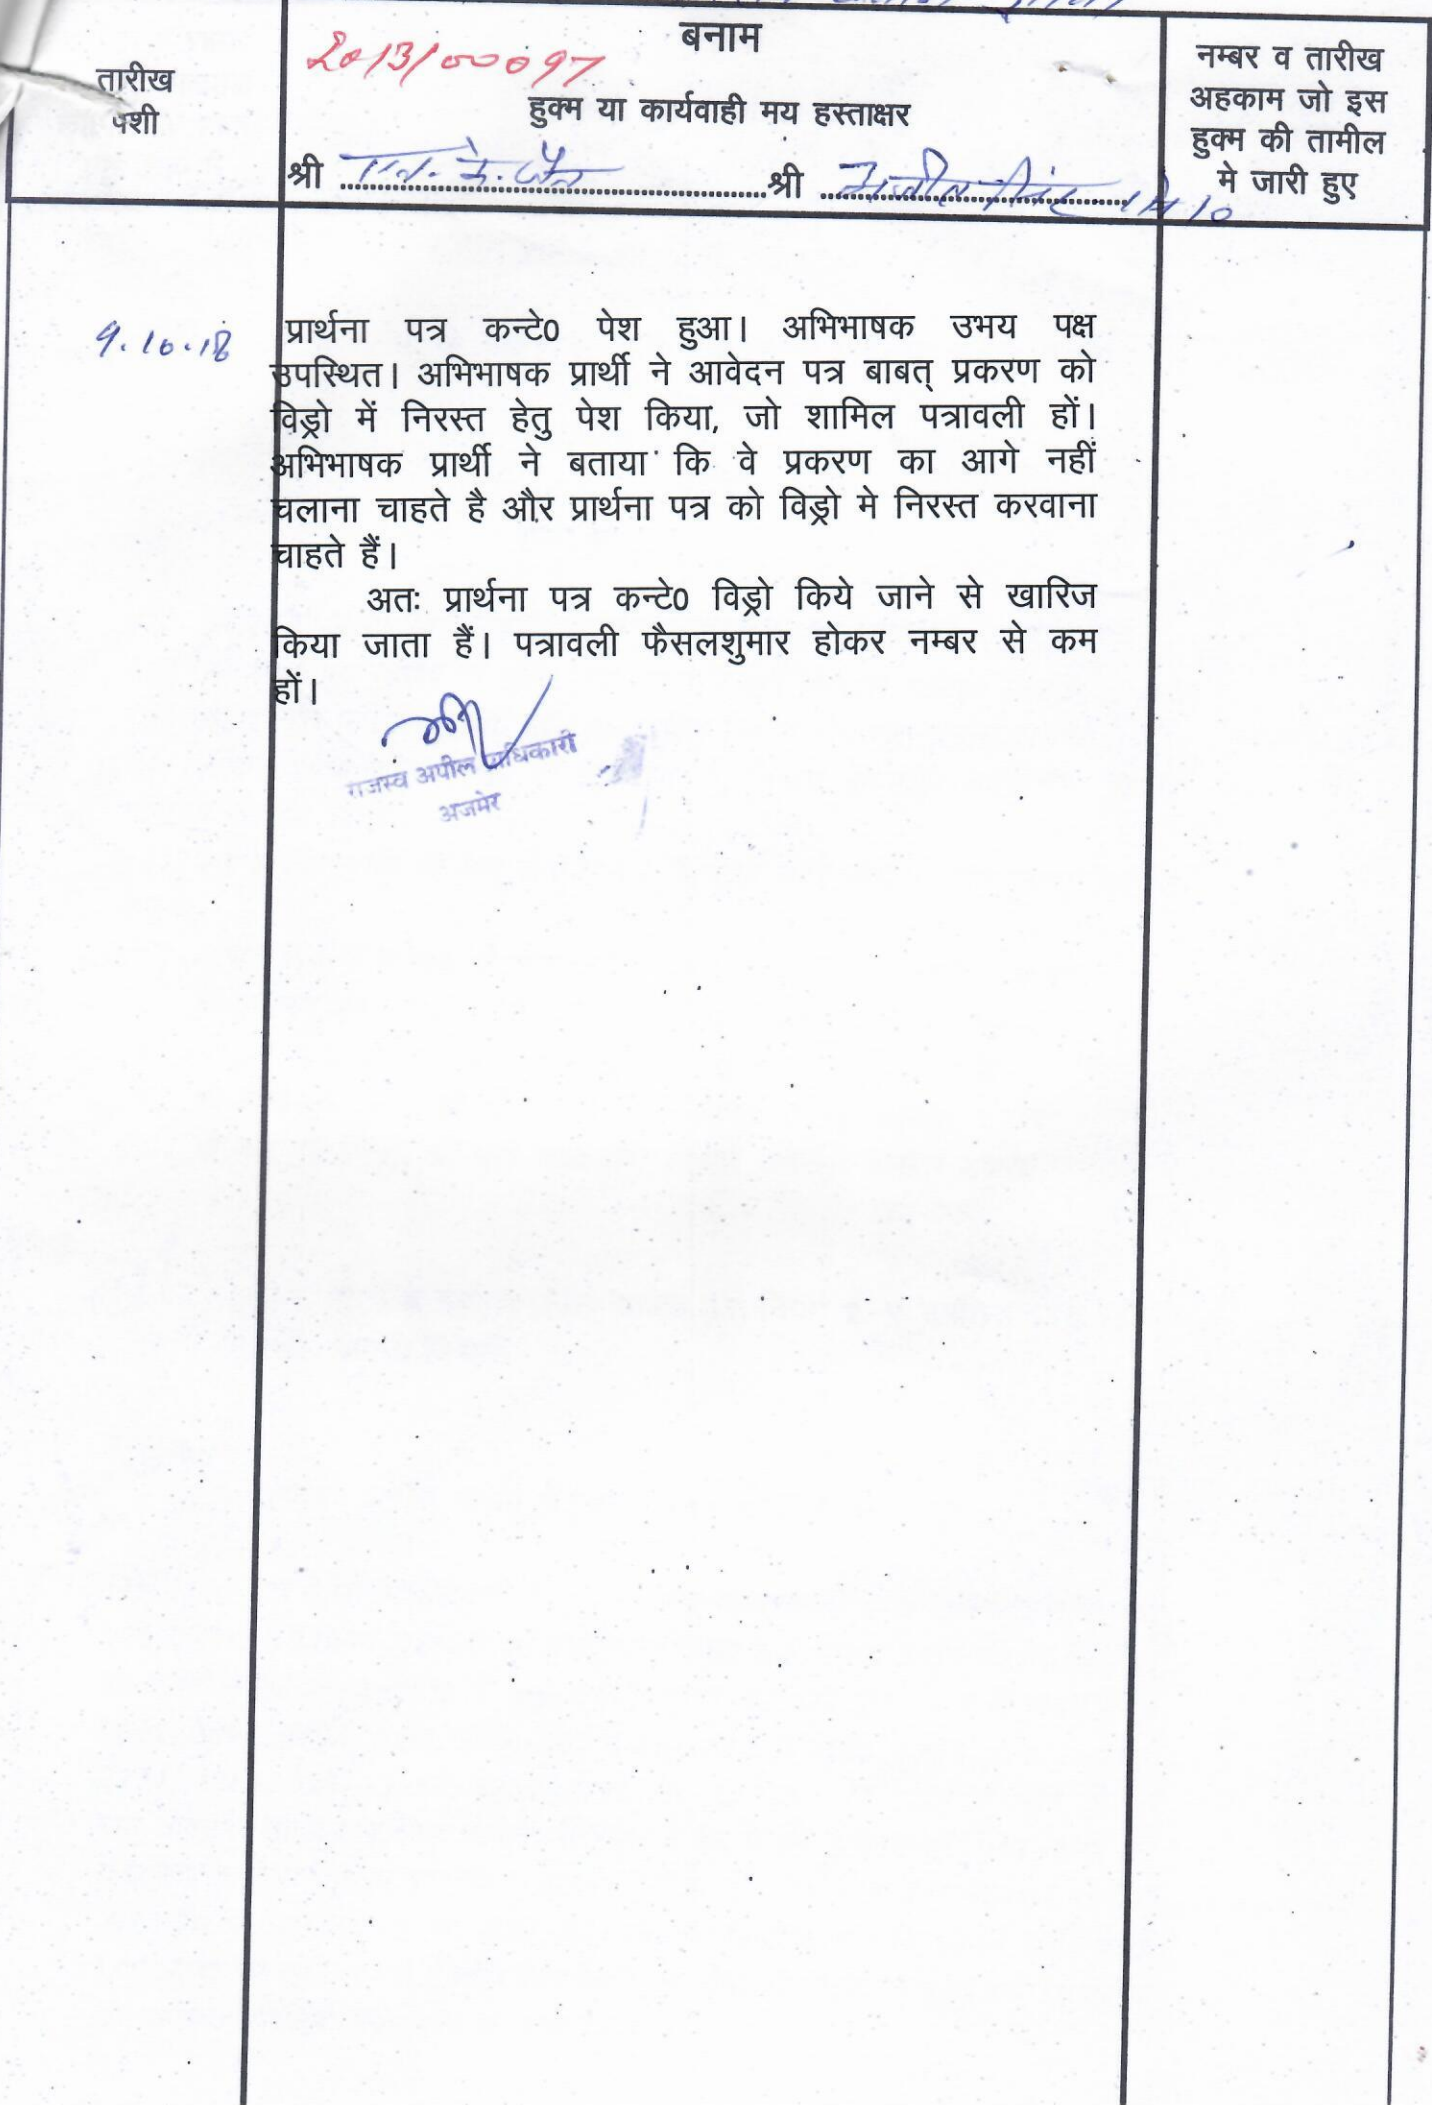 बनाम
2013/00097
तारीख
पेशी
हुक्म या कार्यवाही मय हस्ताक्षर
श्री एन. के. जैन श्री
नम्बर व तारीख
अहकाम जो इस
हुक्म की तामील
मे जारी हुए
9.10.18
प्रार्थना पत्र कन्टे0 पेश हुआ। अभिभाषक उभय पक्ष
उपस्थित। अभिभाषक प्रार्थी ने आवेदन पत्र बाबत् प्रकरण को
विड्रो में निरस्त हेतु पेश किया, जो शामिल पत्रावली हों।
अभिभाषक प्रार्थी ने बताया कि वे प्रकरण का आगे नहीं
चलाना चाहते है और प्रार्थना पत्र को विड्रो मे निरस्त करवाना
चाहते हैं।
अतः प्रार्थना पत्र कन्टे0 विड्रो किये जाने से खारिज
किया जाता हैं। पत्रावली फैसलशुमार होकर नम्बर से कम
हों।
राजस्व अपील प्राधिकारी
अजमेर